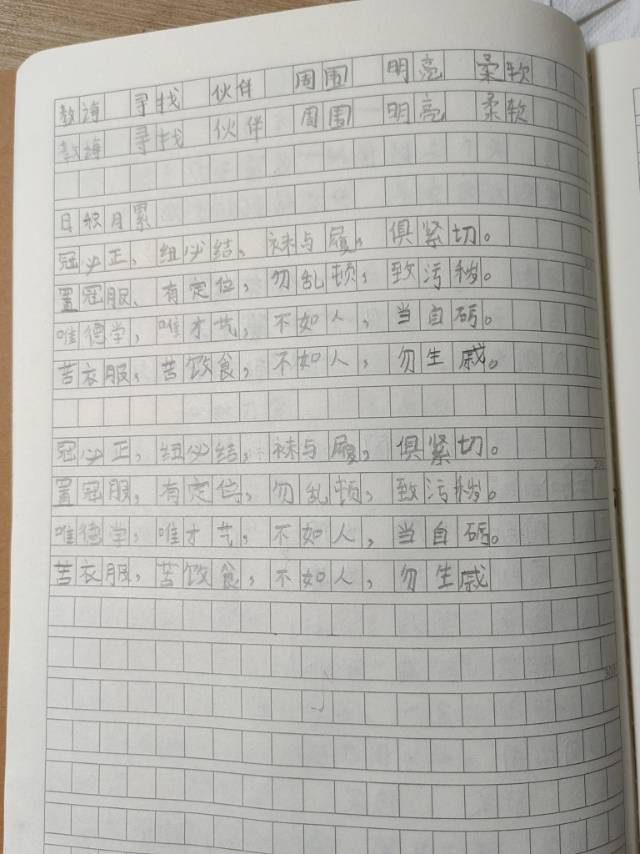 教诲 寻找 伙伴 周围 明亮 柔软
教诲 寻找 伙伴 周围 明亮 柔软
日积月累
冠必正，纽必结，袜与履，俱紧切。
置冠服，有定位，勿乱顿，致污秽。
唯德学，唯才艺，不如人，当自砺。
若衣服，若饮食，不如人，勿生戚。
冠必正，纽必结，袜与履，俱紧切。
置冠服，有定位，勿乱顿，致污秽。
唯德学，唯才艺，不如人，当自砺。
若衣服，若饮食，不如人，勿生戚